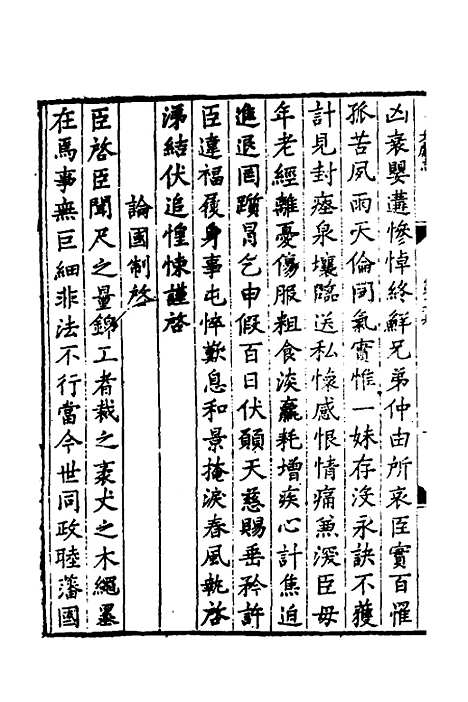 凶衰嬰遘慘悼終鮮兄弟仲由所哀臣實百罹
孤苦夙雨天倫同氣實惟一妹存沒永訣不獲
計見封瘞泉壤臨送私懷感恨情痛兼深臣母
年老經離憂傷服粗食淡羸耗增疾心計焦迫
進退罔躓冒乞申假百日伏願天慈賜垂矜許
臣違福履身事屯悴歎息和景掩淚春風執啓
涕結伏追惶悚謹啓
論國制啓
臣啓臣聞尺之量錦工者裁之袤丈之木繩墨
在焉事無巨細非法不行當今世同政睦藩國